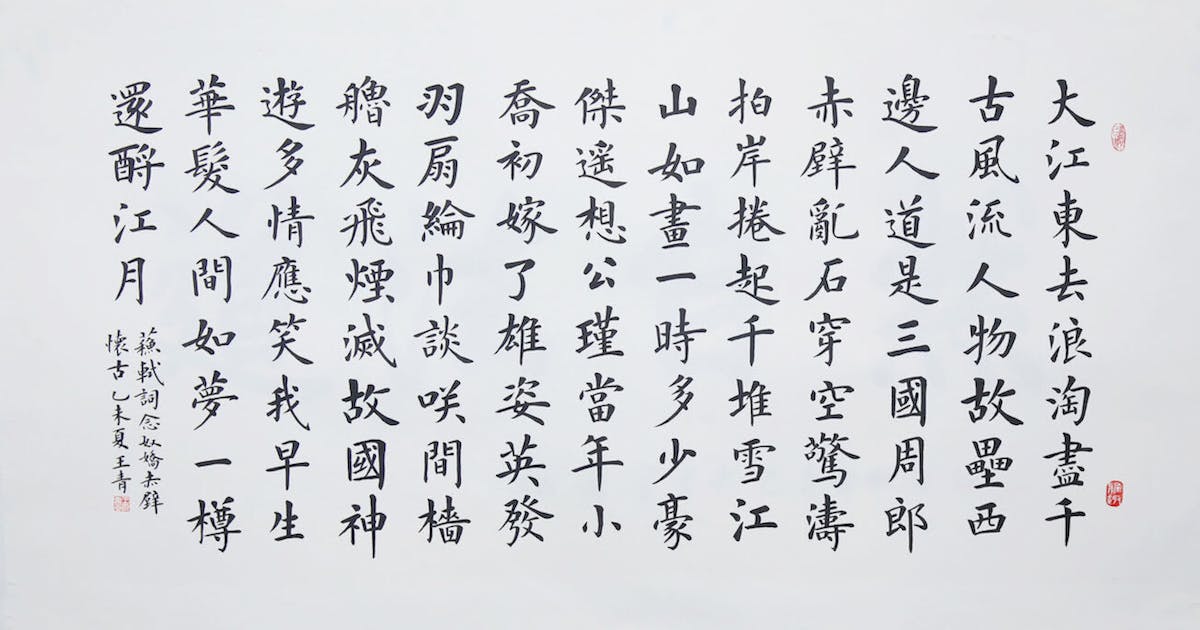 大江東去浪淘盡千
古風流人物故壘西
邊人道是三國周郎
赤壁亂石穿空驚濤
拍岸捲起千堆雪江
山如畫一時多少豪
傑遥想公瑾當年小
喬初嫁了雄姿英發
羽扇綸巾談咲間檣
艪灰飛煙滅故國神
遊多情應笑我早生
華髮人間如夢一樽
還酹江月
蘇軾詞念奴嬌赤壁
懷古乙未夏王青